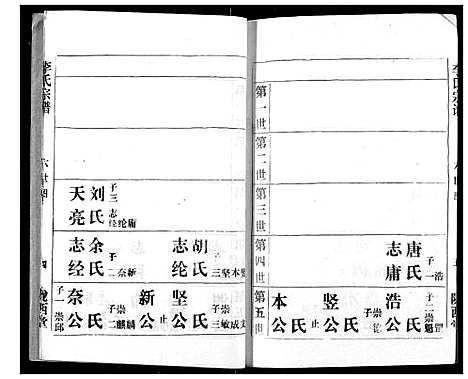 李氏宗谱
第一世
第二世
第三世
第四世
第五世
唐氏
志庸
子一
浩
浩公
氏
子二
崇魁
竖公
氏
子
崇
本公
氏
止
陇西堂
李氏宗谱
六
四
刘氏
天亮
子三
志
经纶庸
胡氏
志纶
子三
坚竖本
余氏
志经
子二
新奈
坚公
氏
子三
崇
敏成文
新公
止
奈公
氏
子二
崇
麒麟
子一
崇邱
陇西堂